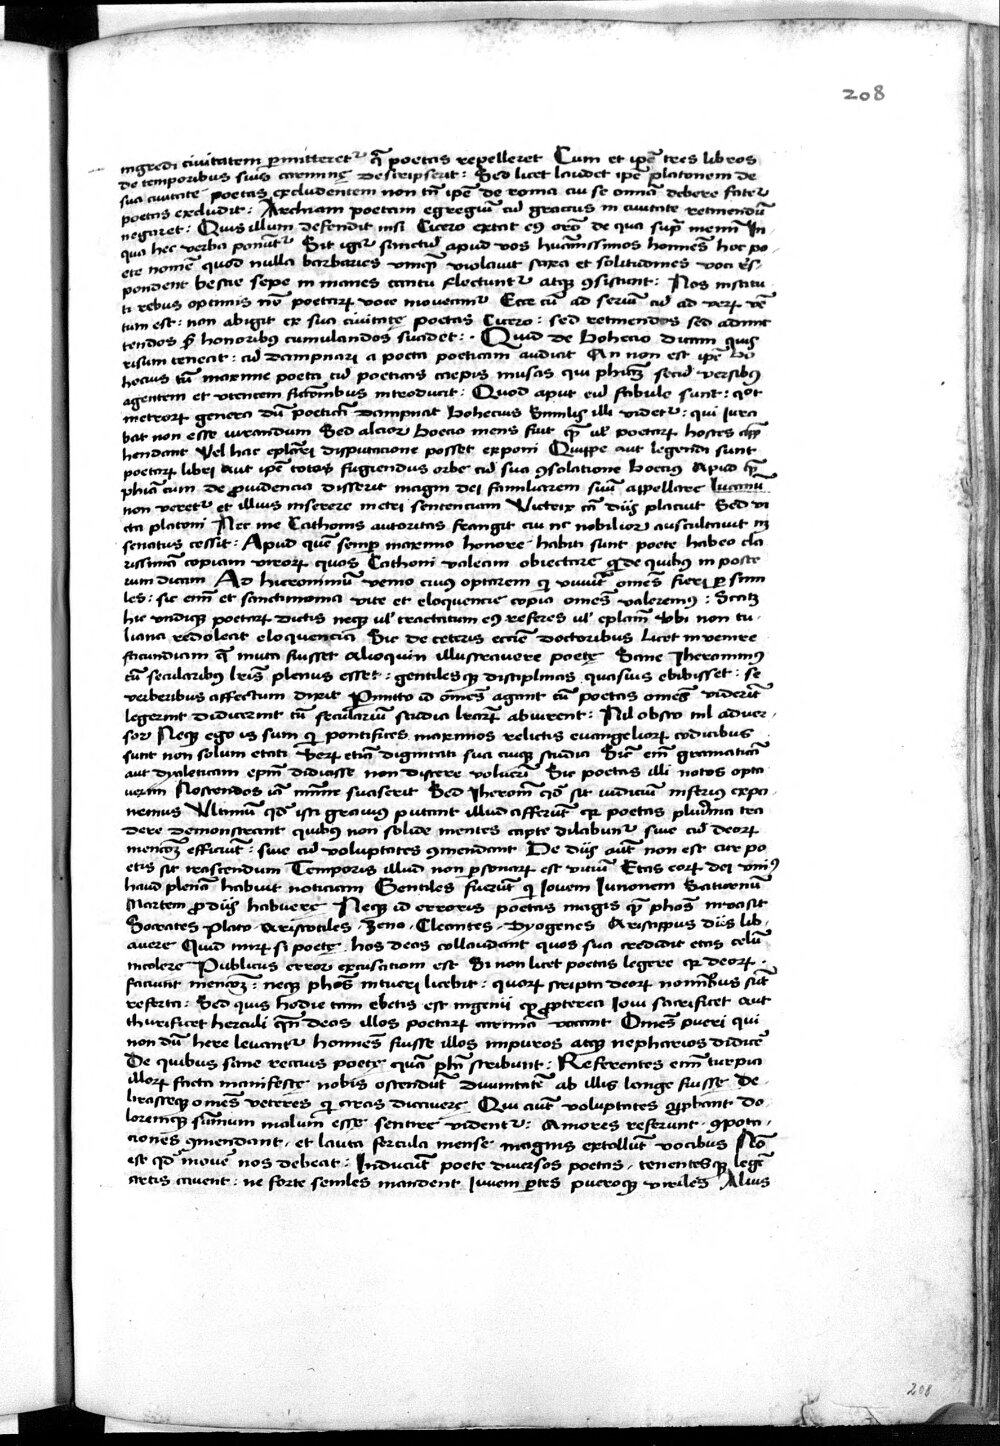 208
ingredi civitatem permitteretur quam poetas repelleret Cum et ipse tres libros
de temporibus suis carmine descripserit : Sed licet laudet ipse platonem de
sua civitate poetas excludentem non tamen ipse de roma cui se omnia debere fatetur
poetas excludit : Archiam poetam egregium cum graccus in civitate retinendum
negaret : Quis illum defendit nisi Cicero extat eius oratio de qua supra memini In
qua hec verba ponuntur Sit igitur sanctum apud vos humanissimos homines hoc po
ete nomen quod nulla barbaries unquam violavit saxa et solitudines voci res-
pondent bestie sepe inmanes cantu flectuntur atque consistunt : Nos institu
ti rebus optimis non poetarum voce moveamur Ecce cum ad serium cum ad verum ven
tum est : non abigit ex sua civitate poetas Cicero : sed retinendos sed admit
tendos sed honoribus cumulandos suadet : Quid de bohecio dicam quis
risum teneat : cum dampnari a poeta poeticam audiat An non est ipse bo
hecius tum maxime poeta cum poeticas carpit musas qui philosophiam secum versibus
agentem et utentem fictionibus introducit : Quod aput eum fabule sunt : quot
metrorum genera dum poeticam dampnat bohecius Similis illi videtur : qui iura
bat non esse iurandum Sed alcior boecio mens fuit quam vel poetarum hostes appre
hendant Vel hac epistolari disputacione posset exponi Quippe aut legendi sunt
poetarum libri Aut ipse totos fugiendus orbe cum sua consolatione boecius Apud quem
phia cum de providencia disserit magni dei familiarem suum appellare lucanum
non veretur et illius inserere metri sentenciam Victrix causa diis placuit Sed vi
cta platoni Nec me Cathonis autoritas frangit cui nec nobilior auscultavit nec
senatus cessit : Apud quem semper maximo honore habiti sunt poete habeo cla
rissimam copiam virorum quos Cathoni valeam obiectare quod de quibus in poste
rum dicam Ad hieronimum venio cuius optarem qui vivunt omnes fieri per simi
les : sic enim et sanctimonia vite et eloquencie copia omnes valeremus : Scatet
hic undique poetarum dictis neque vel tractatum eius referes vel epistolam Ubi non tu
liana redoleat eloquencia Sic de ceteris ecclesie doctoribus licet invenire
facundiam quam muta fuisset Alioquin illustravere poete Sane Iheronimus
cum secularibus litteris plenus esset : gentilesque disciplinas quasivis ebibisset : se
verberibus affectum dixit Permitto id omnes agant cum poetas omnes viderint
legerint didicerint tum secularium studia litterarum abiurent : Nil obsto nil adver-
sor Neque ego is sum qui pontifices maximos relictis evangeliorum codicibus
sunt non solum etati Verum etiam dignitati sua cuique studia Sicut enim gramaticam
aut dyaleticam episcopum didicisse non discere voluerim Sic poetas illi notos opta
verim Noscendos iam minime suaserit Sed Iheronimi quod sit iudicium inferius expo
nemus Ultimum quod isti gravius putant illud afferunt quod poetas plurima tra
dere demonstrant quibus non solide mentes capte dilabuntur sive cum deorum
mencionem efficiunt : sive cum voluptates commendant De diis autem non est cur po
etis sit irascendum Temporis illud non personarum est vitium Etas eorum dei unius
haud plenam habuit noticiam Gentiles fuerunt qui Iovem Iunonem Saturnum
Martem pro diis habuere Neque id erroris poetas magis quam philosophos invasit
Socrates Plato Aristotiles Zeno Cleantes Dyogenes Aristippus diis lib-
avere Quid mirum si poete hos deos collaudant quos sua credidit etas celum
incolere Publicus error excusationi est Si non licet poetas legere quod deorum
faciunt mencionem : neque philosophos intueri licebit : quorum scripta deorum nominibus sunt
referta : Sed quis hodie tam ebetis est ingenii quod propterea Iovi sacrificet aut
thurificet herculi quoniam deos illos poetarum carmina vocant Omnes pueri qui
non dum here levantur homines fuisse illos impuros atque nepharios didicere
De quibus sane rectius poete quam philosophi scribunt : Referentes enim turpia
illorum facta manifeste nobis ostendunt divinitatem ab illis longe fuisse De-
lirasseque omnes veteres qui aras dicavere Qui autem voluptates improbant do-
loremque summum malum esse sentire videntur : Amores referunt compota-
ciones commendant et lauta fercula mense magnis extollunt vocibus Non
est quod movere nos debeat : Inducunt poete diversos poetas tenentesque legem
artis cavent : ne forte seniles mandent iuveni partes pueroque viriles Alius
208